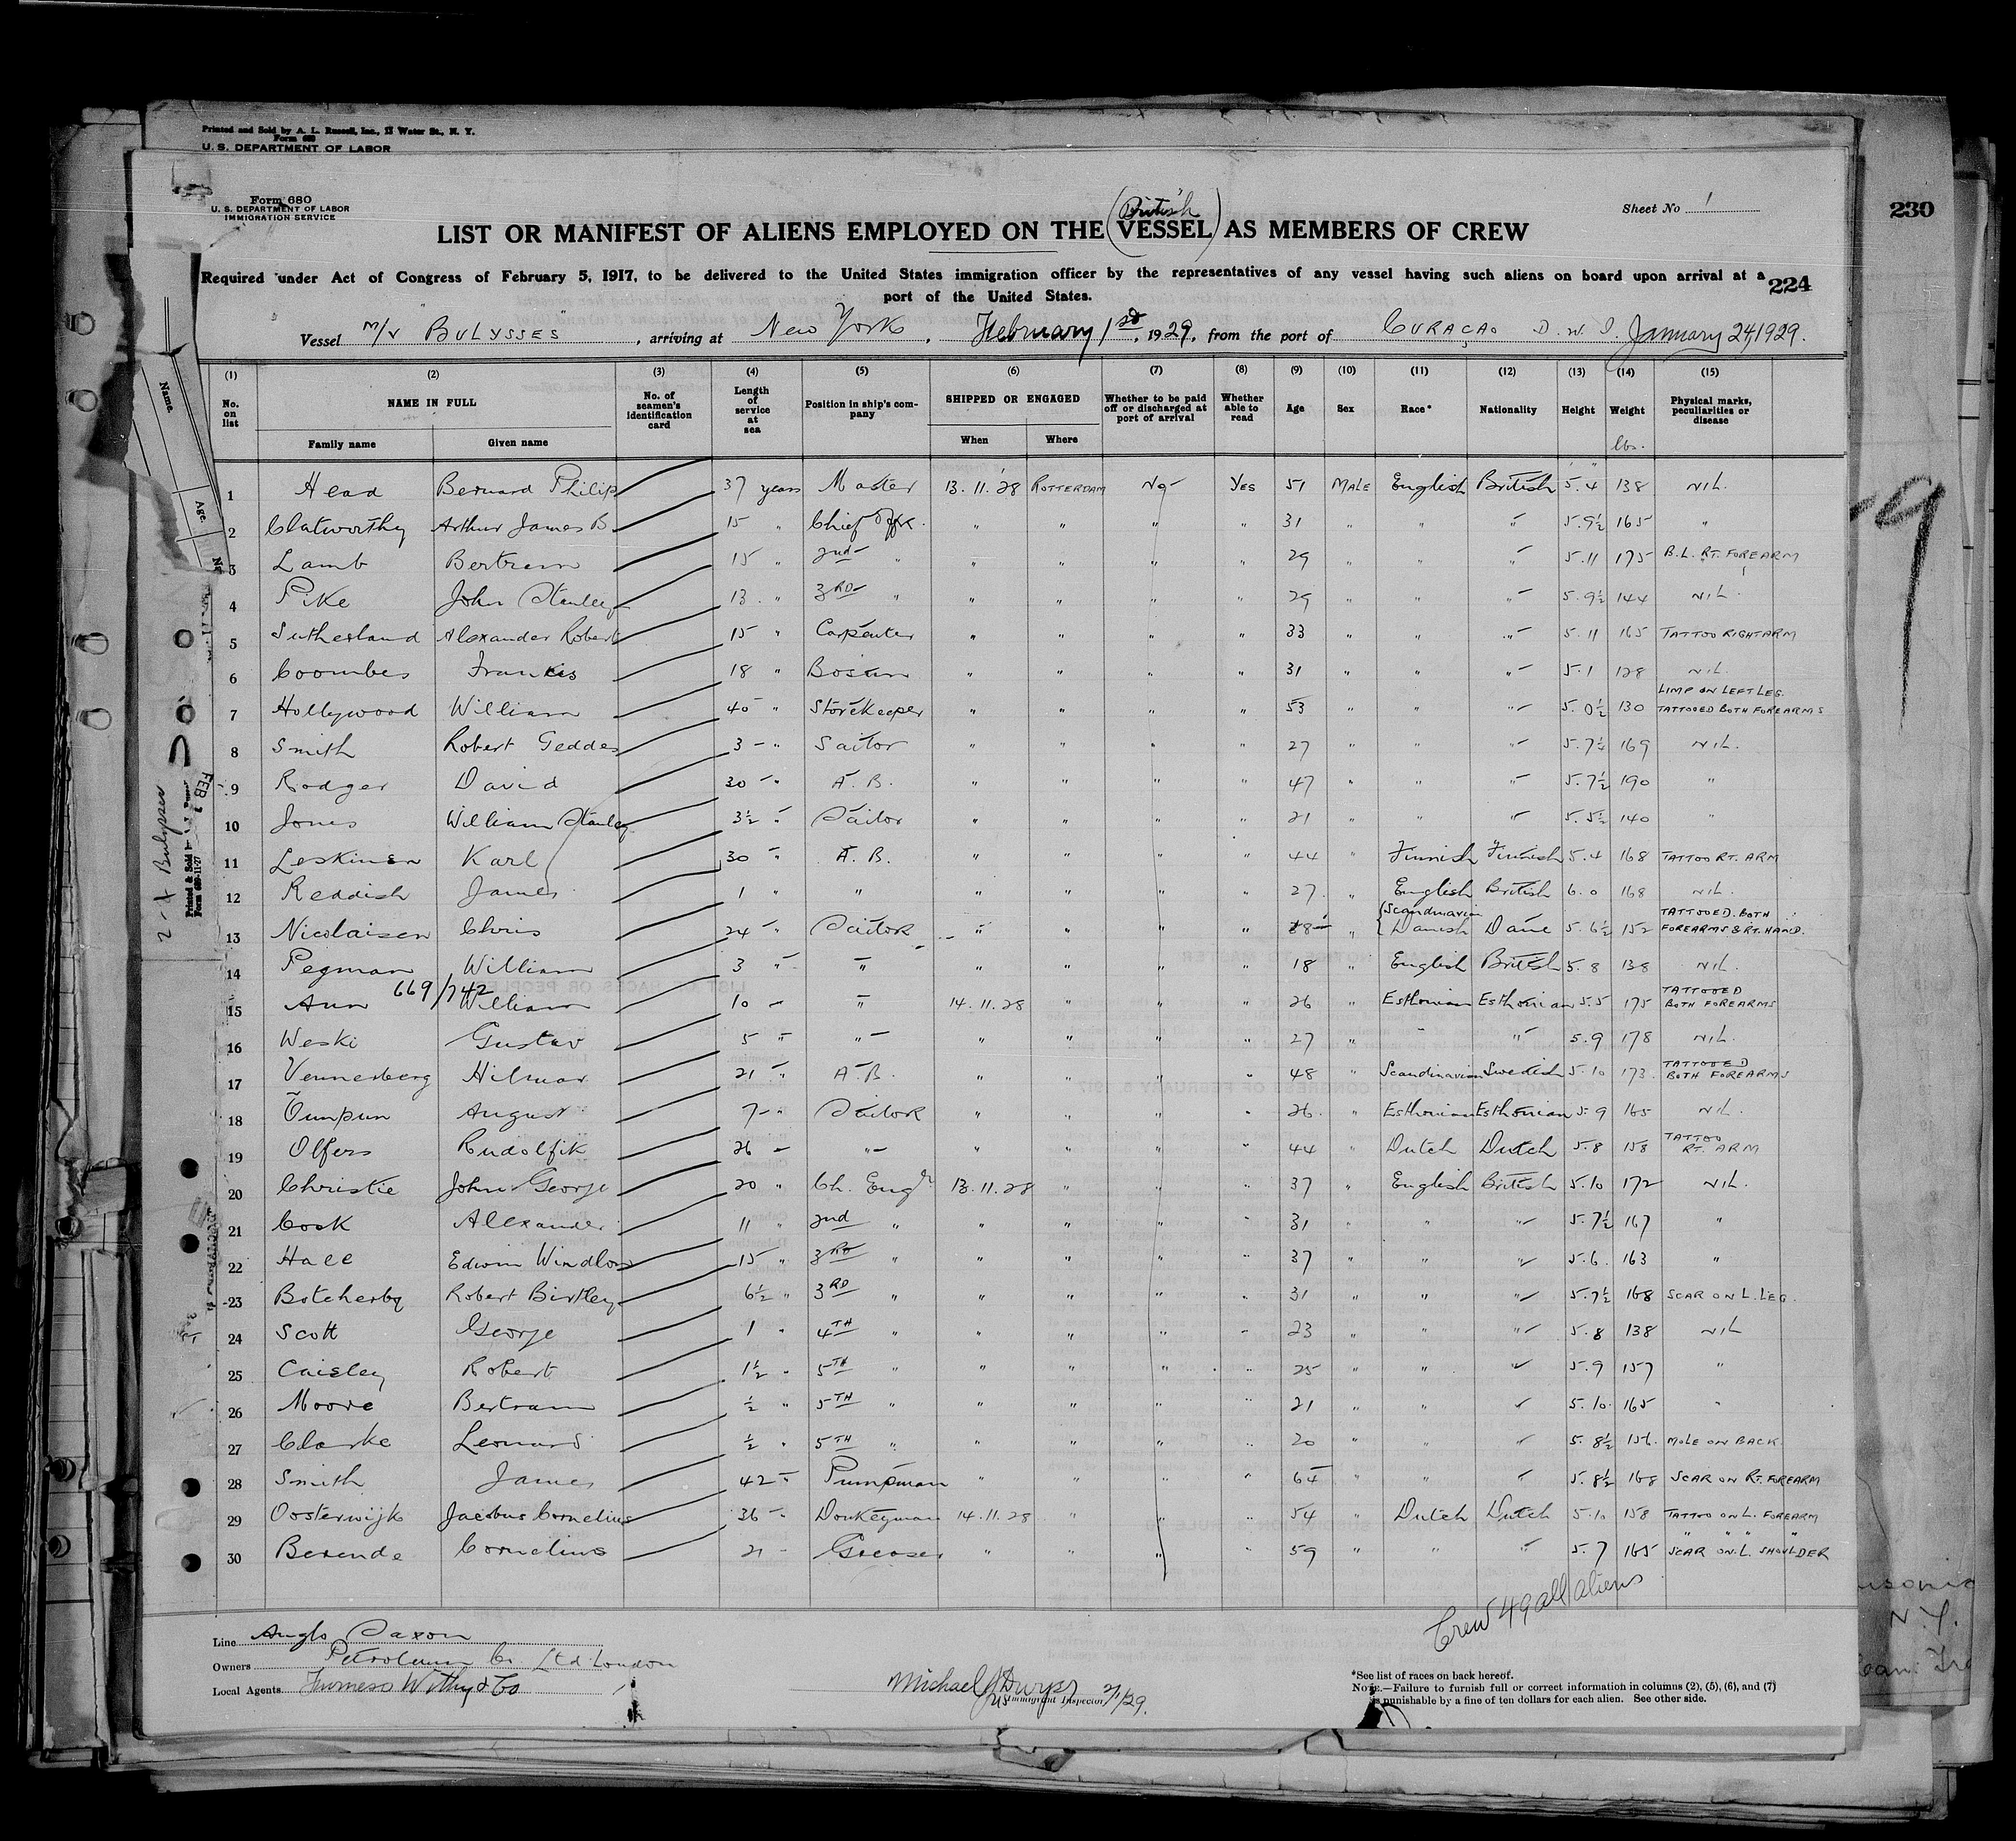 Printed and Sold by A. L. Russell, Inc., 12 Water St., N. Y.
Form 680
U. S. DEPARTMENT OF LABOR
230
Form 680
U. S. DEPARTMENT OF LABOR
IMMIGRATION SERVICE
Sheet No 1
(British)
LIST OR MANIFEST OF ALIENS EMPLOYED ON THE VESSEL AS MEMBERS OF CREW
Required under Act of Congress of February 5, 1917, to be delivered to the United States immigration officer by the representatives of any vessel having such aliens on board upon arrival at a
port of the United States.
224
Vessel M/V "BULYSSES", arriving at New York, February 1st, 1929, from the port of CURAÇAO D.W.I. January 24, 1929.
(1) (2) (3) (4) (5) (6) (7) (8) (9) (10) (11) (12) (13) (14) (15)
No. on list NAME IN FULL Family name Given name No. of seamen's identification card Length of service at sea Position in ship's company SHIPPED OR ENGAGED When Where Whether to be paid off or discharged at port of arrival Whether able to read Age Sex Race* Nationality Height Weight lbs. Physical marks, peculiarities or disease
1 Head Bernard Philip 37 years Master 13.11.28 ROTTERDAM No YES 51 MALE English British 5.4 138 NIL.
2 Clatworthy Arthur James B 15 " Chief Offr. " " " " 31 " " " 5.9½ 165 "
3 Lamb Bertram 15 " 2nd " " " " " 29 " " " 5.11 175 B.L. RT. FOREARM
4 Pike John Stanley 13 " 3RD " " " " " 29 " " " 5.9½ 144 NIL.
5 Sutherland Alexander Robert 15 " Carpenter " " " " 33 " " " 5.11 165 TATTOO RIGHT ARM
6 Coombes Francis 18 " Bosun " " " " 31 " " " 5.1 128 NIL
7 Hollywood William 40 " Storekeeper " " " " 53 " " " 5.0½ 130 LIMP ON LEFT LEG. TATTOOED BOTH FOREARMS
8 Smith Robert Geddes 3 " Sailor " " " " 27 " " " 5.7½ 169 NIL.
9 Rodger David 30 " A.B. " " " " 47 " " " 5.7½ 190 "
10 Jones William Stanley 3½ " Sailor " " " " 21 " " " 5.5½ 140 "
11 Leskinen Karl 30 " A.B. " " " " 44 " Finnish Finnish 5.4 168 TATTOO RT. ARM
12 Reddish James 1 " " " " " " 27 " English British 6.0 168 NIL.
13 Nicolaisen Chris 24 " Sailor " " " " " Scandinavian Danish Dane 5.6½ 152 TATTOOED. BOTH FOREARMS & RT. HAND.
14 Pegman William 3 " " " " " " 18 " English British 5.8 138 NIL.
669/742
15 Ann William 10 " " 14.11.28 " " " 26 " Esthonian Esthonian 5.5 175 TATTOOED BOTH FOREARMS
16 Weski Gustav 5 " " " " " " 27 " " " 5.9 178 NIL.
17 Vennerberg Hilmar 21 " A.B. " " " " 48 " Scandinavian Swedish 5.10 173 TATTOOED BOTH FOREARMS
18 Õunpuu August 7 " Sailor " " " " 26 " Esthonian Esthonian 5.9 165 NIL.
19 Olfers Rudolfik 26 " " " " " " 44 " Dutch Dutch 5.8 158 TATTOO RT. ARM
20 Christie John George 20 " Ch. Engr 13.11.28 " " " 37 " English British 5.10 172 NIL.
21 Cook Alexander 11 " 2nd " " " " " 31 " " " 5.7½ 167 "
22 Hall Edwin 15 " 3RD " " " " " 37 " " " 5.6 163 "
23 Botcherby Robert Birtley 6½ " 3RD " " " " " 31 " " " 5.7½ 168 SCAR ON L. LEG.
24 Scott George 1 " 4TH " " " " " 23 " " " 5.8 138 NIL
25 Caisley Robert 1½ " 5TH " " " " " 25 " " " 5.9 157 "
26 Moore Bertram ½ " 5TH " " " " " 21 " " " 5.10 165 "
27 Clarke Leonard ½ " 5TH " " " " " 20 " " " 5.8½ 156 MOLE ON BACK
28 Smith James 42 " Pumpman " " " " 64 " " " 5.8½ 168 SCAR ON RT. FOREARM
29 Oosterwijk Jacobus Cornelius 36 " Donkeyman 14.11.28 " " " 54 " Dutch Dutch 5.10 158 TATTOO ON L. FOREARM
30 Berende Cornelius 21 " Greaser " " " " 59 " " " 5.7 165 " " " " SCAR ON L. SHOULDER
Crew 49 all aliens
Line Anglo Saxon
Owners Petroleum Co. Ltd. London
Local Agents Furness Withy & Co
Michael J Dwyer
US Immigrant Inspector 2/1/29.
*See list of races on back hereof.
NOTE.—Failure to furnish full or correct information in columns (2), (5), (6), and (7)
is punishable by a fine of ten dollars for each alien. See other side.
Name.
Age.
FEB 1
2-1 Bulysses
N.Y.